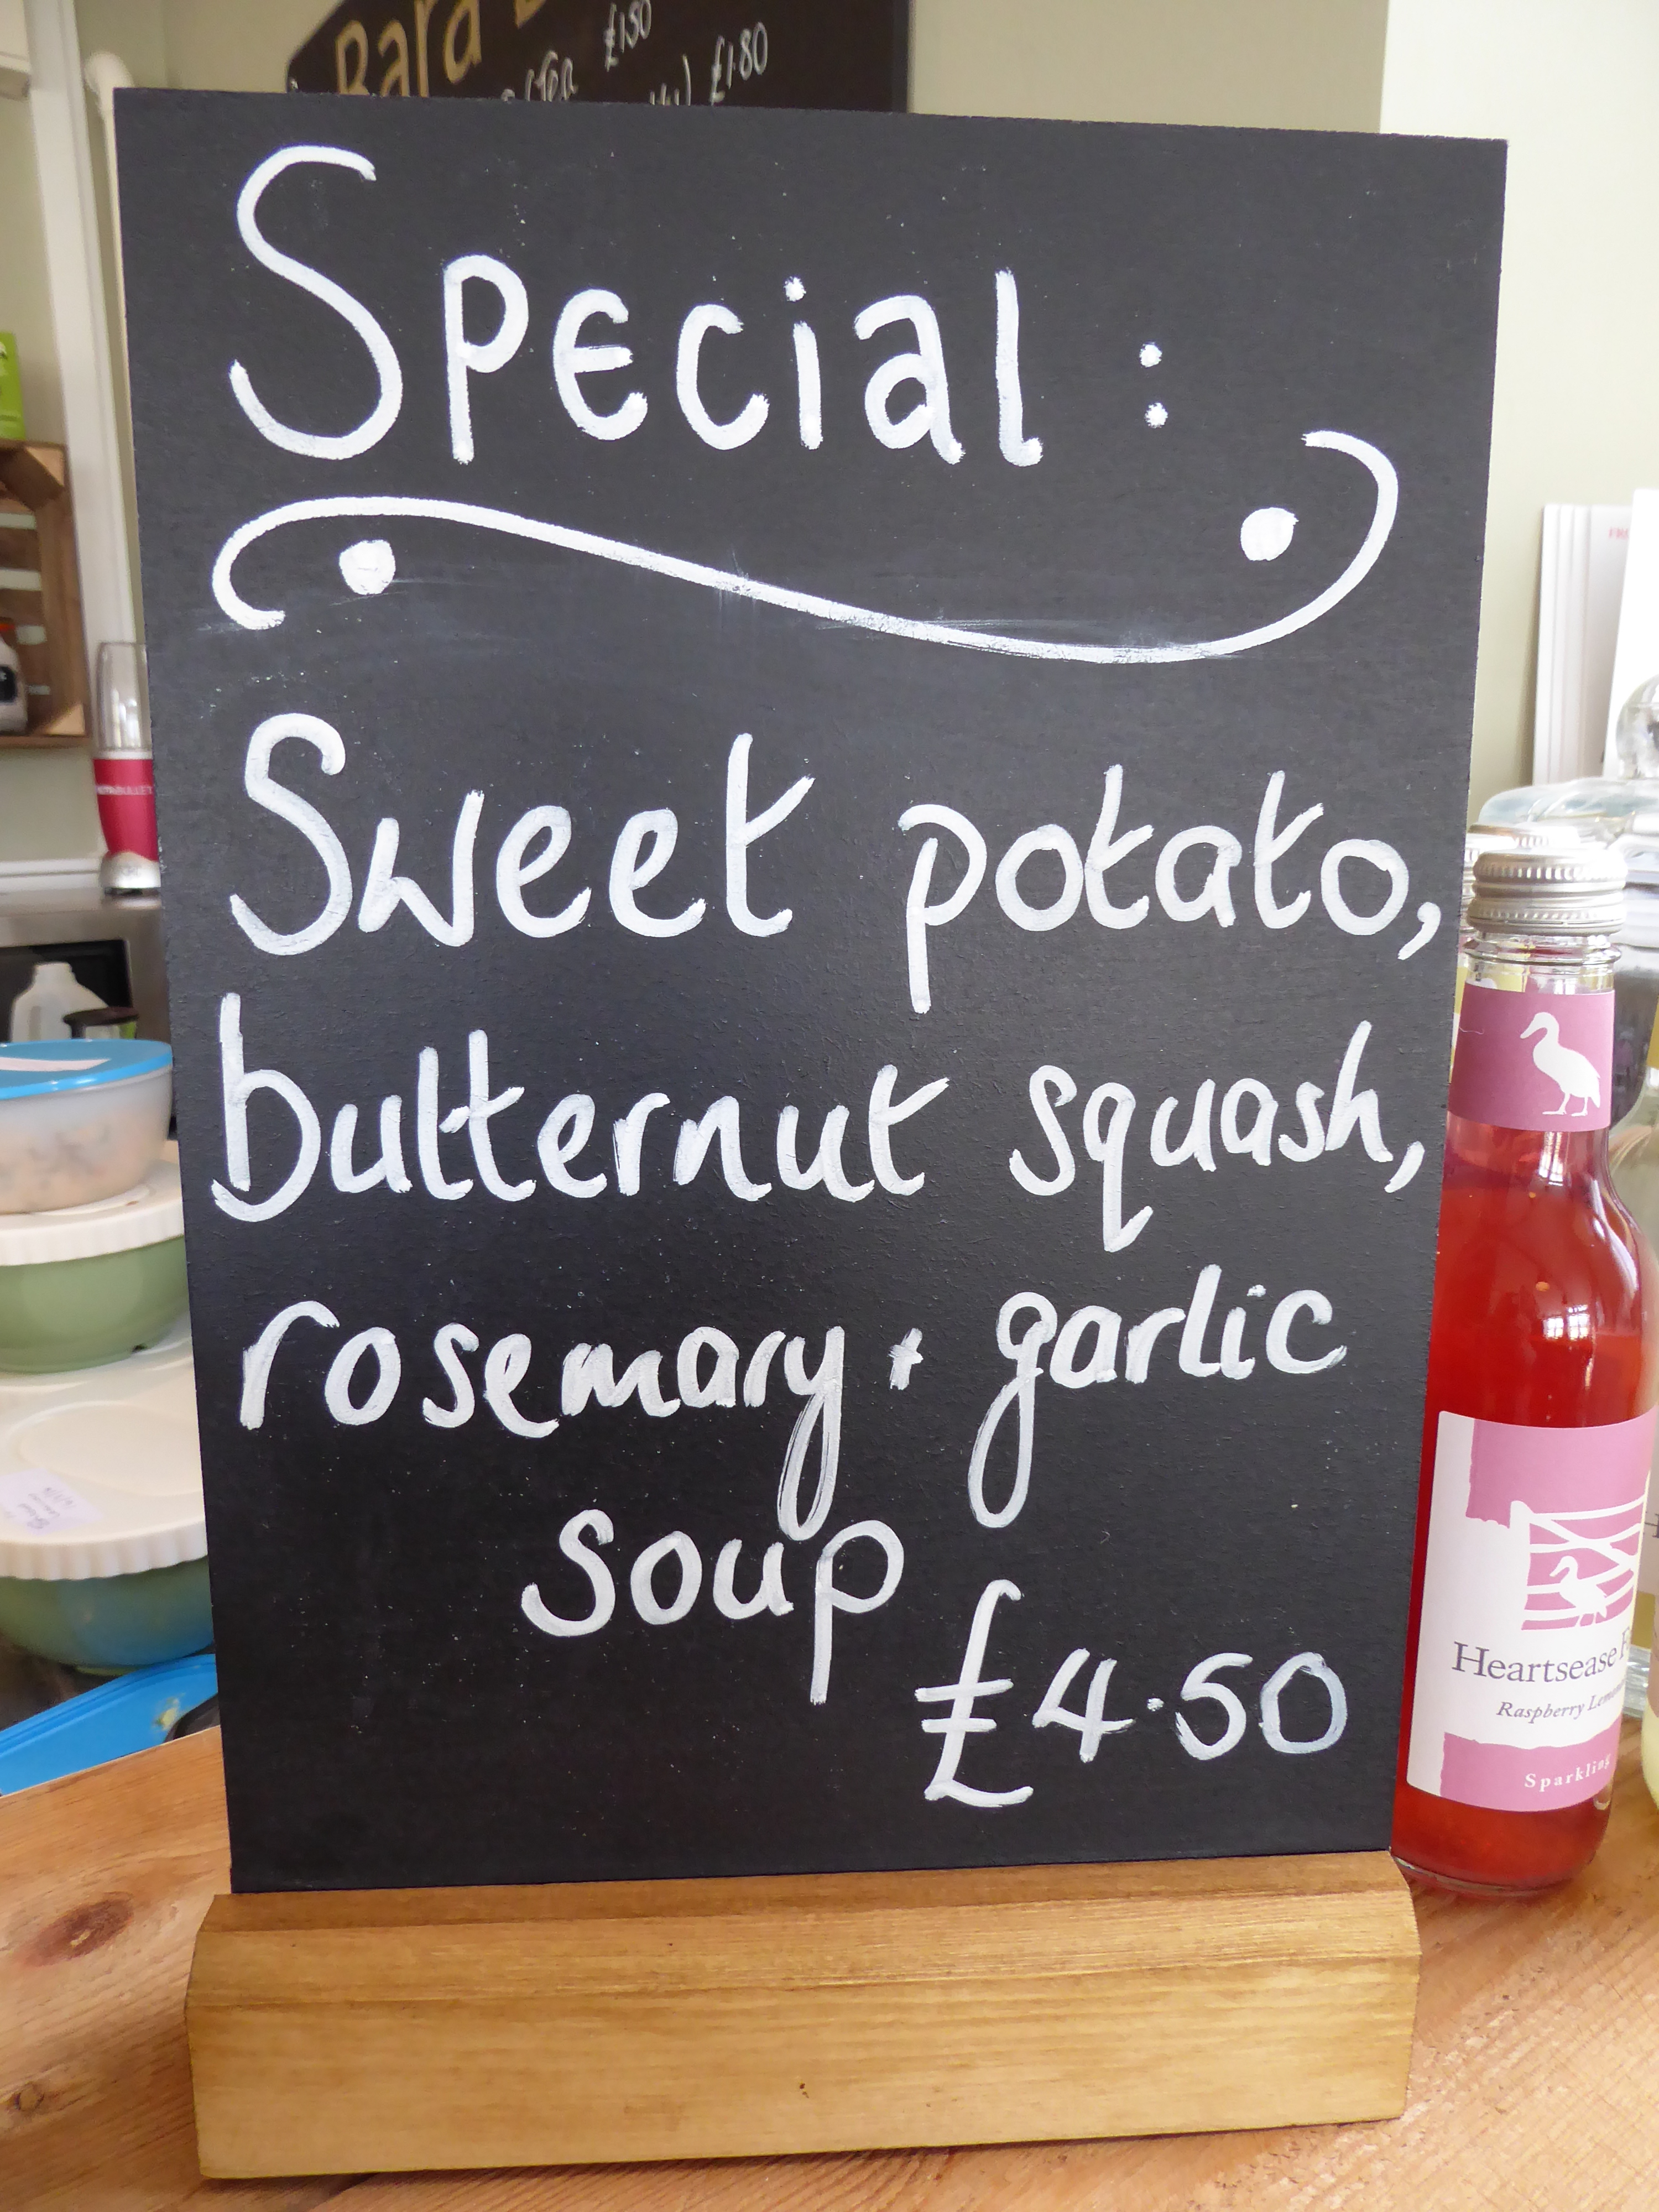 Bara
£1.50
£1.80
Special:
Sweet potato,
butternut squash,
rosemary + garlic
soup
£4.50
Heartsease
Raspberry
Sparkling